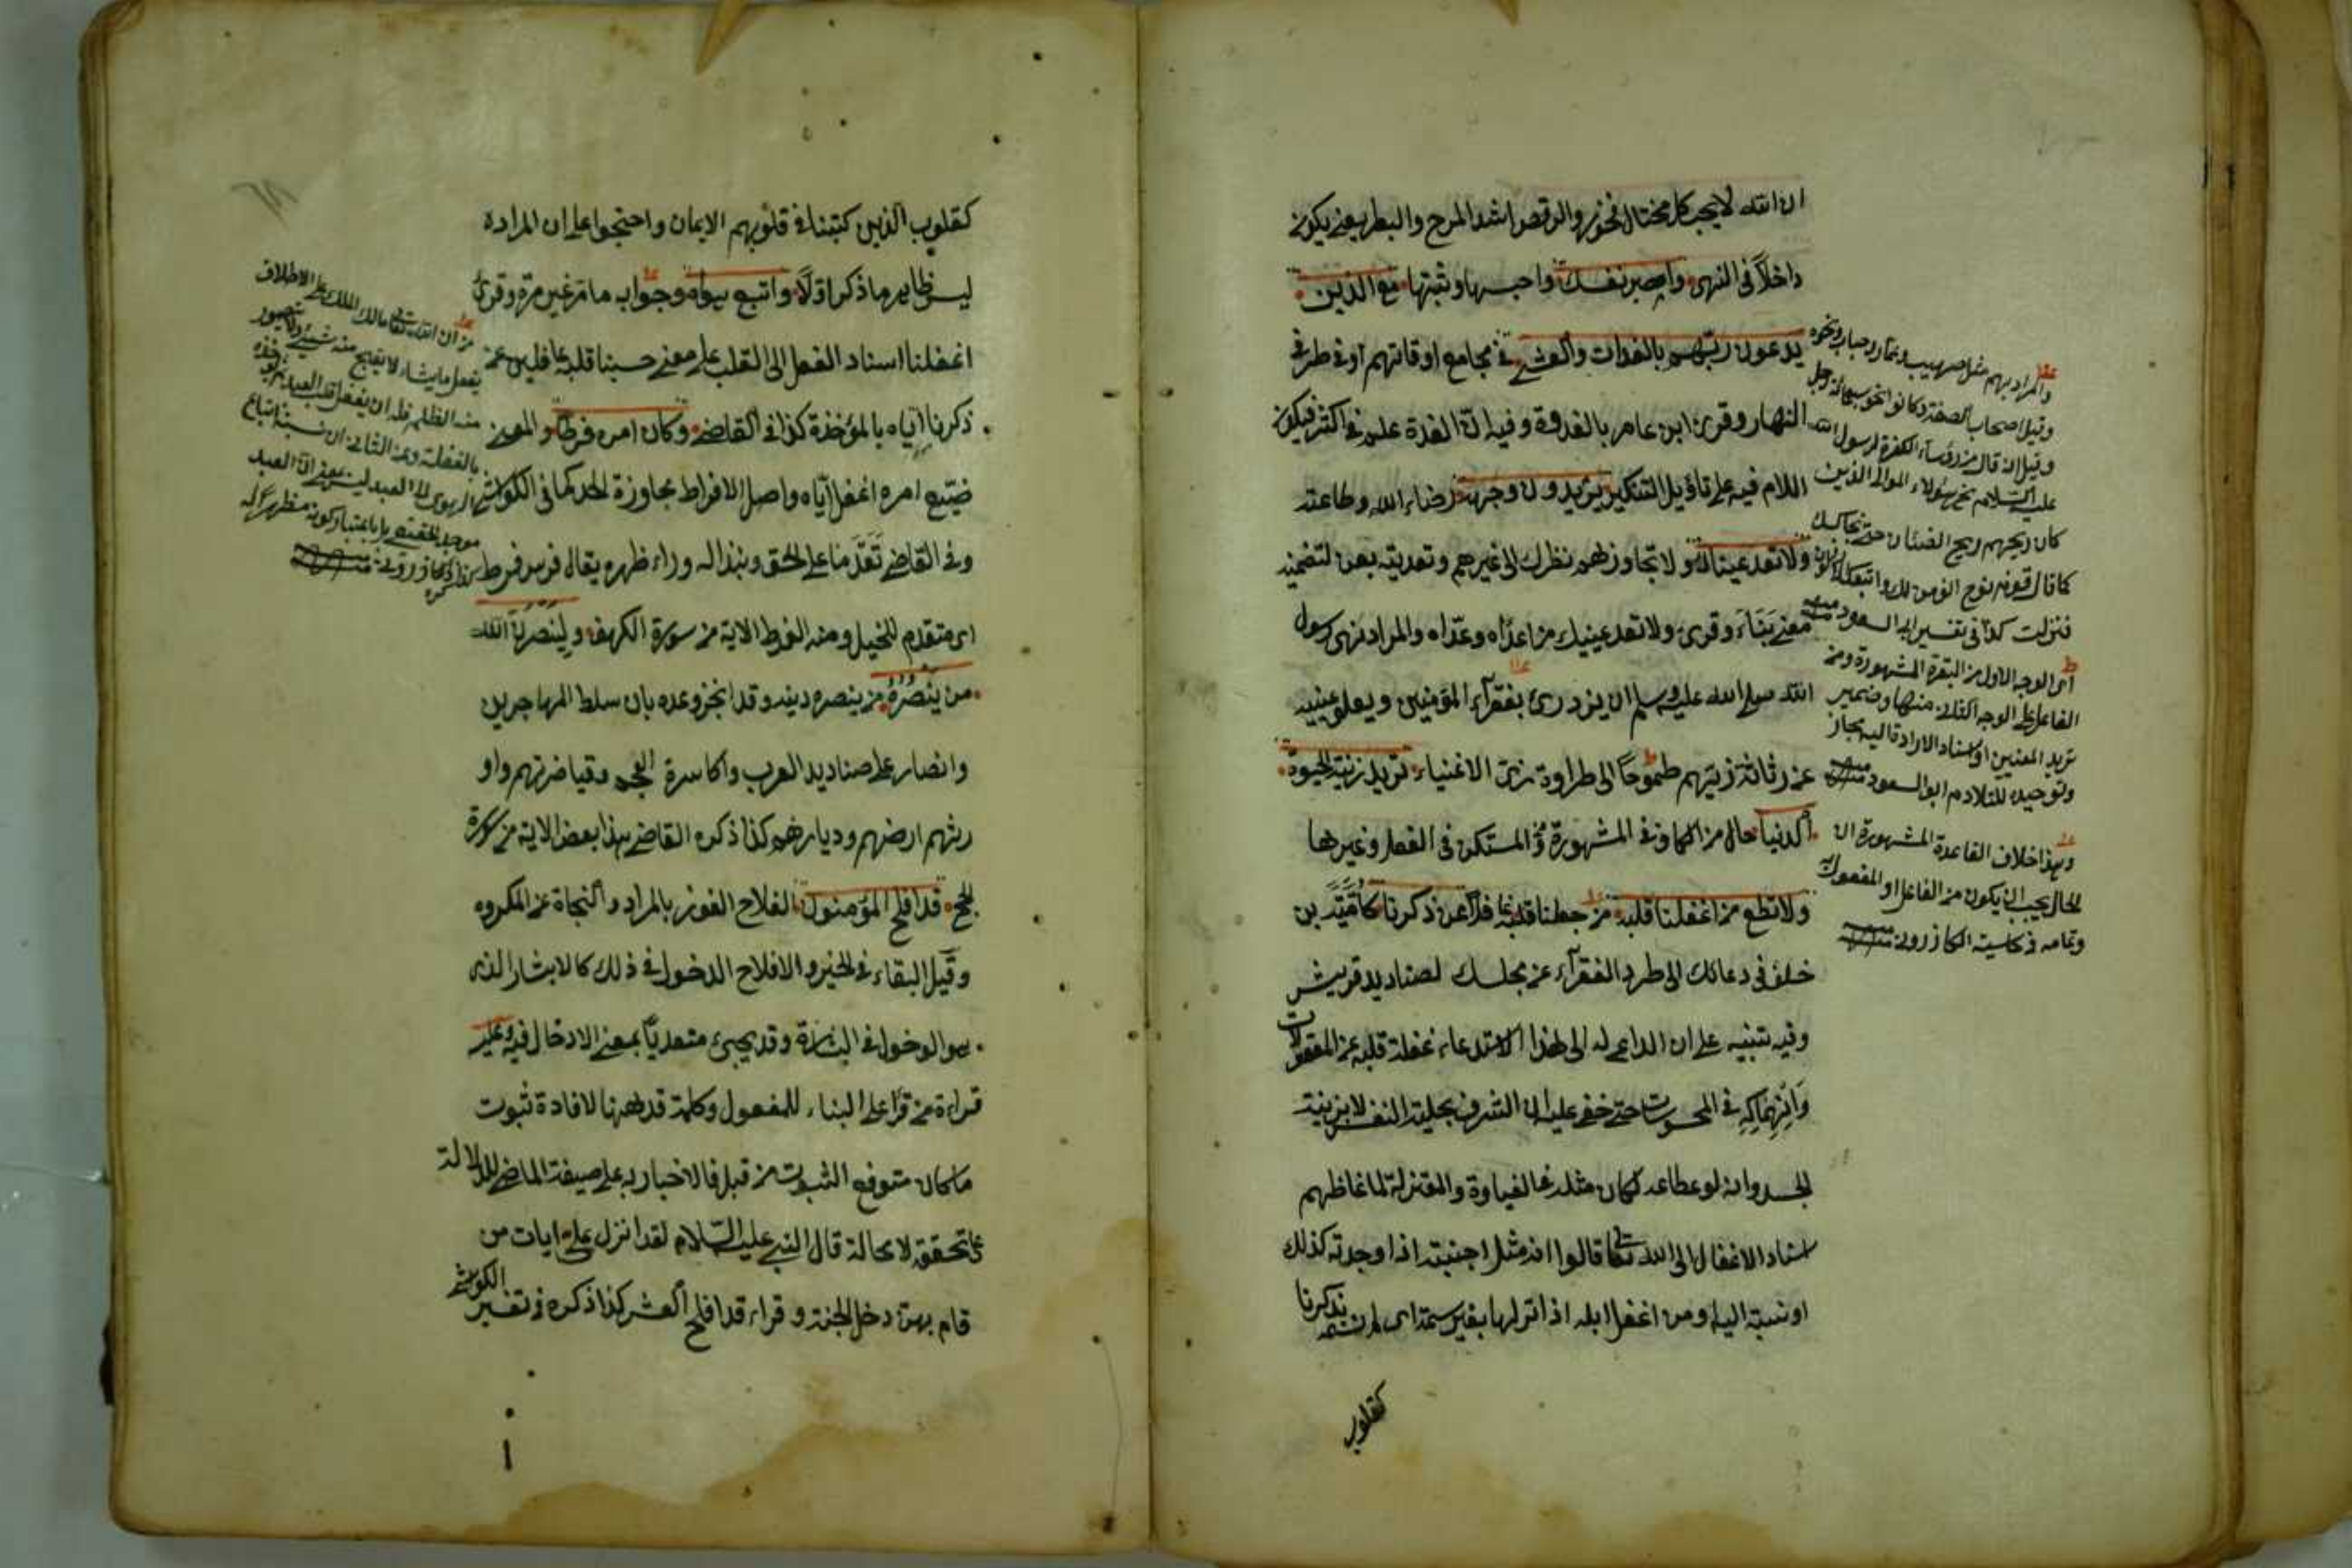 ان الله لا يحب كل مختال فخور والرقص اشد المرح والبطر يعنى يكون
داخلاً فى النهى واصبر نفسك واحبسها وثبتها مع الذين
يدعون ربهم بالغدات والعشى فى مجامع اوقاتهم او فى طرفى
النهار وقرئ ابن عامر بالغدوة وفيه ان الغدة علم فى اكثر فيكون
اللام فيه على تاؤيل التنكير يريدون وجهه رضاء الله وطاعته
ولا تعد عيناك ولا تجاوزهم نظرك الى غيرهم وتعديته بعن لتضمنه
معنى نَبَتَاءَ وقرئ ولا تعد عينيك من اعداه وعدّاه والمراد نهى رسول
الله صلى الله عليه وسلم ان يزدرئ بفقرآء المؤمنين ويعلو عينيه
عن رثاثة زيّهم طموحاً الى طراوة زىّ الاغنياء تريد زينة الحيوة
الدنيا حال من الكاف فى المشهورة ومن المستكن فى الفعل وغيرها
ولا تطع من اغفلنا قلبه من جعلنا قلبه غافلا عن ذكرنا كأمَيَّة بن
خلف فى دعائك الى طرد الفقرآء عن مجلسك لصناديد قريش
وفيه تنبيه على ان الداعى له الى هذا الاستدعاء غفلة قلبه عن المعقولات
وَانْهِمَاكِهِ فى المحسوسات حتى خفى عليه ان الشرف بحلية النفس لا بزينة
الجسد وانه لو عطاعه كان مثله فى الغباوة والمعتزلة لما غاظهم
اسناد الاغفال الى الله تعالى قالوا انه مثل اجنبته اذا وجدته كذلك
او نسبته اليه او من اغفل ابله اذا تركها بغير سمة اى لم نسمه بذكرنا
كقلوب
والمراد بهم مثل صهيب وعمار وخباب ونحوه
وقيل اصحاب الصفة وكانوا نحو سبعمائة رجل
وقيل انه قال من رؤسآء الكفرة لرسول الله
عليه السلام نحّ هؤلاء الموالى الذين
كان ريحهم ريح الضئان حتى نجالسك
كما قال قوم نوح انؤمن لك واتبعك الارذلون
فنزلت كذا فى تفسير ابى السعود
اى الوجه الاول من القرة المشهورة ومن
الفاعل على الوجه الثانى منها وضمير
تريد للعينين واسناد الارادة اليه مجاز
وتوحيده للتلازم ابو السعود
وهذا خلاف القاعدة المشهورة ان
الحال يجب ان يكون من الفاعل او المفعول به
وتمامه فى حاشية الكازرونى
كقلوب الذين كتبنا فى قلوبهم الايمان واحتجوا على ان المراد
ليس ظاهر ما ذكر اوّلاً واتبع هواه وجوابه ما مر غير مرة وقرئ
اغفلنا اسناد الفعل الى القلب على معنى حسبنا قلبه غافلين عن
ذكرنا اياه بالمؤخذة كذا فى القاضى وكان امره فرطا والمعنى
ضيّع امره اغفل اياه واصل الافراط مجاوزة الحد كما فى الكواشى
وفى القاضى تَقَدُّمَا على الحق ونبذا له وراء ظهره يقال فرس فرط
اى متقدم للخيل ومنه الفرط الاية من سورة الكهف ولينصرنّ الله
من ينصره من ينصر دينه وقد انجز وعده بان سلط المهاجرين
وانصار على صناديد العرب واكاسرة العجم وقياصرتهم واو
رثهم ارضهم وديارهم كذا ذكره القاضى هذا بعض الاية من سورة
الحج قد افلح المؤمنون الفلاح الفوز بالمراد والنجاة عن المكروه
وقيل البقاء فى الخير والافلاح الدخول فى ذلك كالابشار الذى
هو الدخول فى البشارة وقد يجئ متعديّا بمعنى الادخال فيه وعليه
قراءة من قرأ على البناء للمفعول وكلمة قد ههنا لافادة ثبوت
ما كان متوقع الثبوت من قبل فالاخبار به على صيغة الماضى للدلالة
على تحققه لا محالة قال النبى عليه السلام لقد انزل علىّ ايات من
قام بهن دخل الجنة وقراء قد افلح العشر كذا ذكره فى تفسير الكواشى
من ان الله تعالى مالك الملك على الاطلاق
يفعل ما يشاء لا يقبح منه شيئ ولا يتصور
منه الظلم فله ان يغفل قلب العبد
بالغفلة وعن الثانى ان نسبة اتباع
الهوى الى العبد ليس معنى ان العبد
موجد لحقيقته بل باعتبار كونه مظهرا له
كازرونى